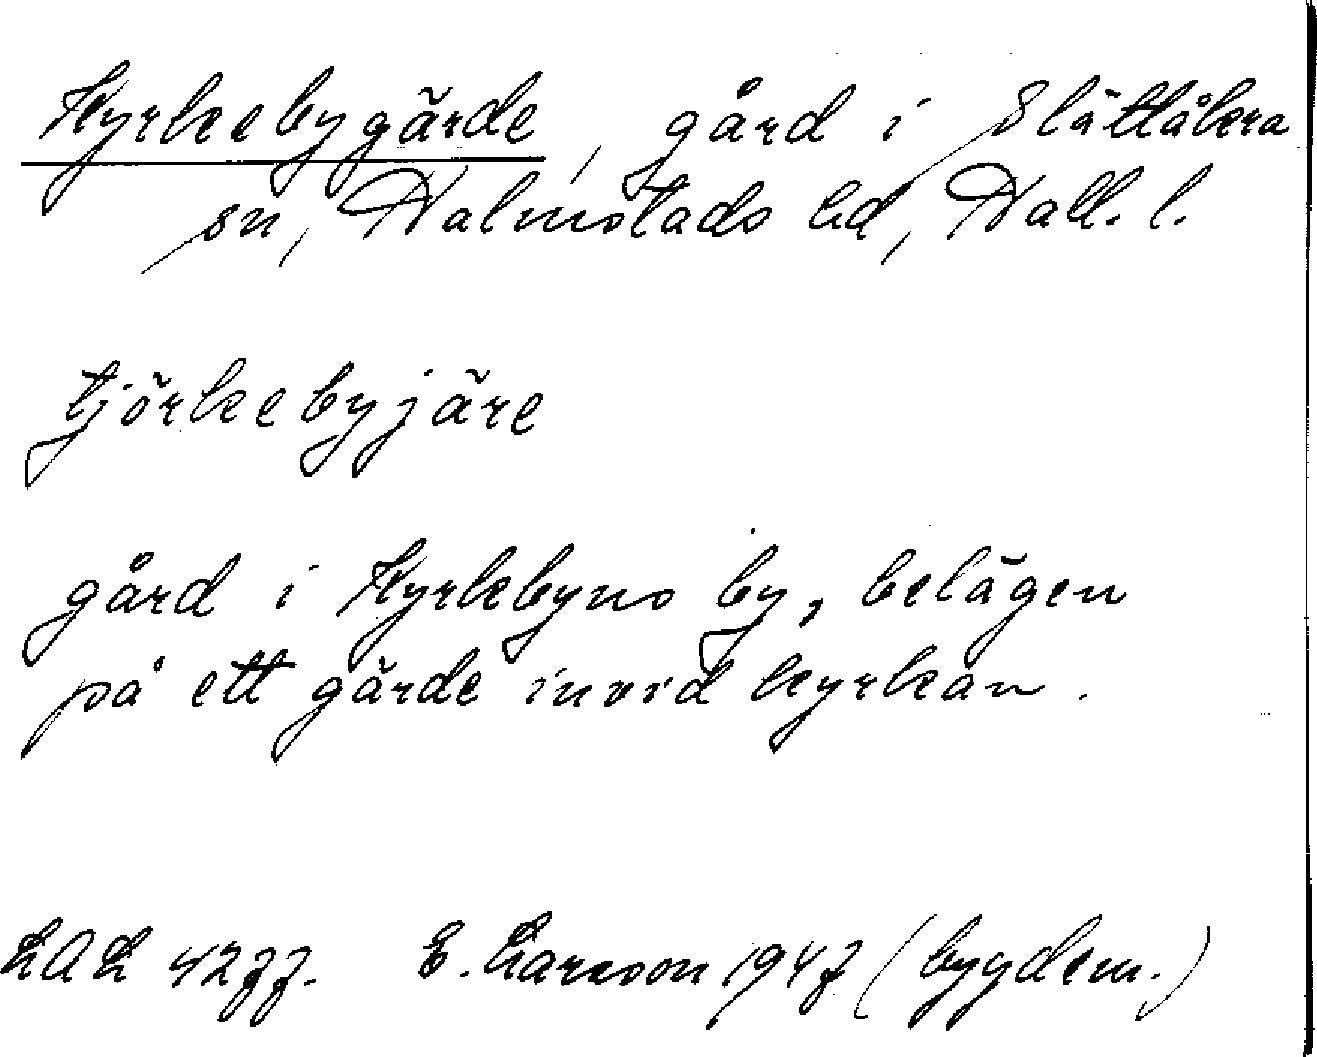 Kyrkebygärde, gård i Slättåkra
sn, Halmstads hd, Hall. l.
tjörkebyjäre
gård i Kyrkebyns by, belägen
på ett gärde invid kyrkan.
LAL 4277. E. Larsson 1947 (bygdem.)